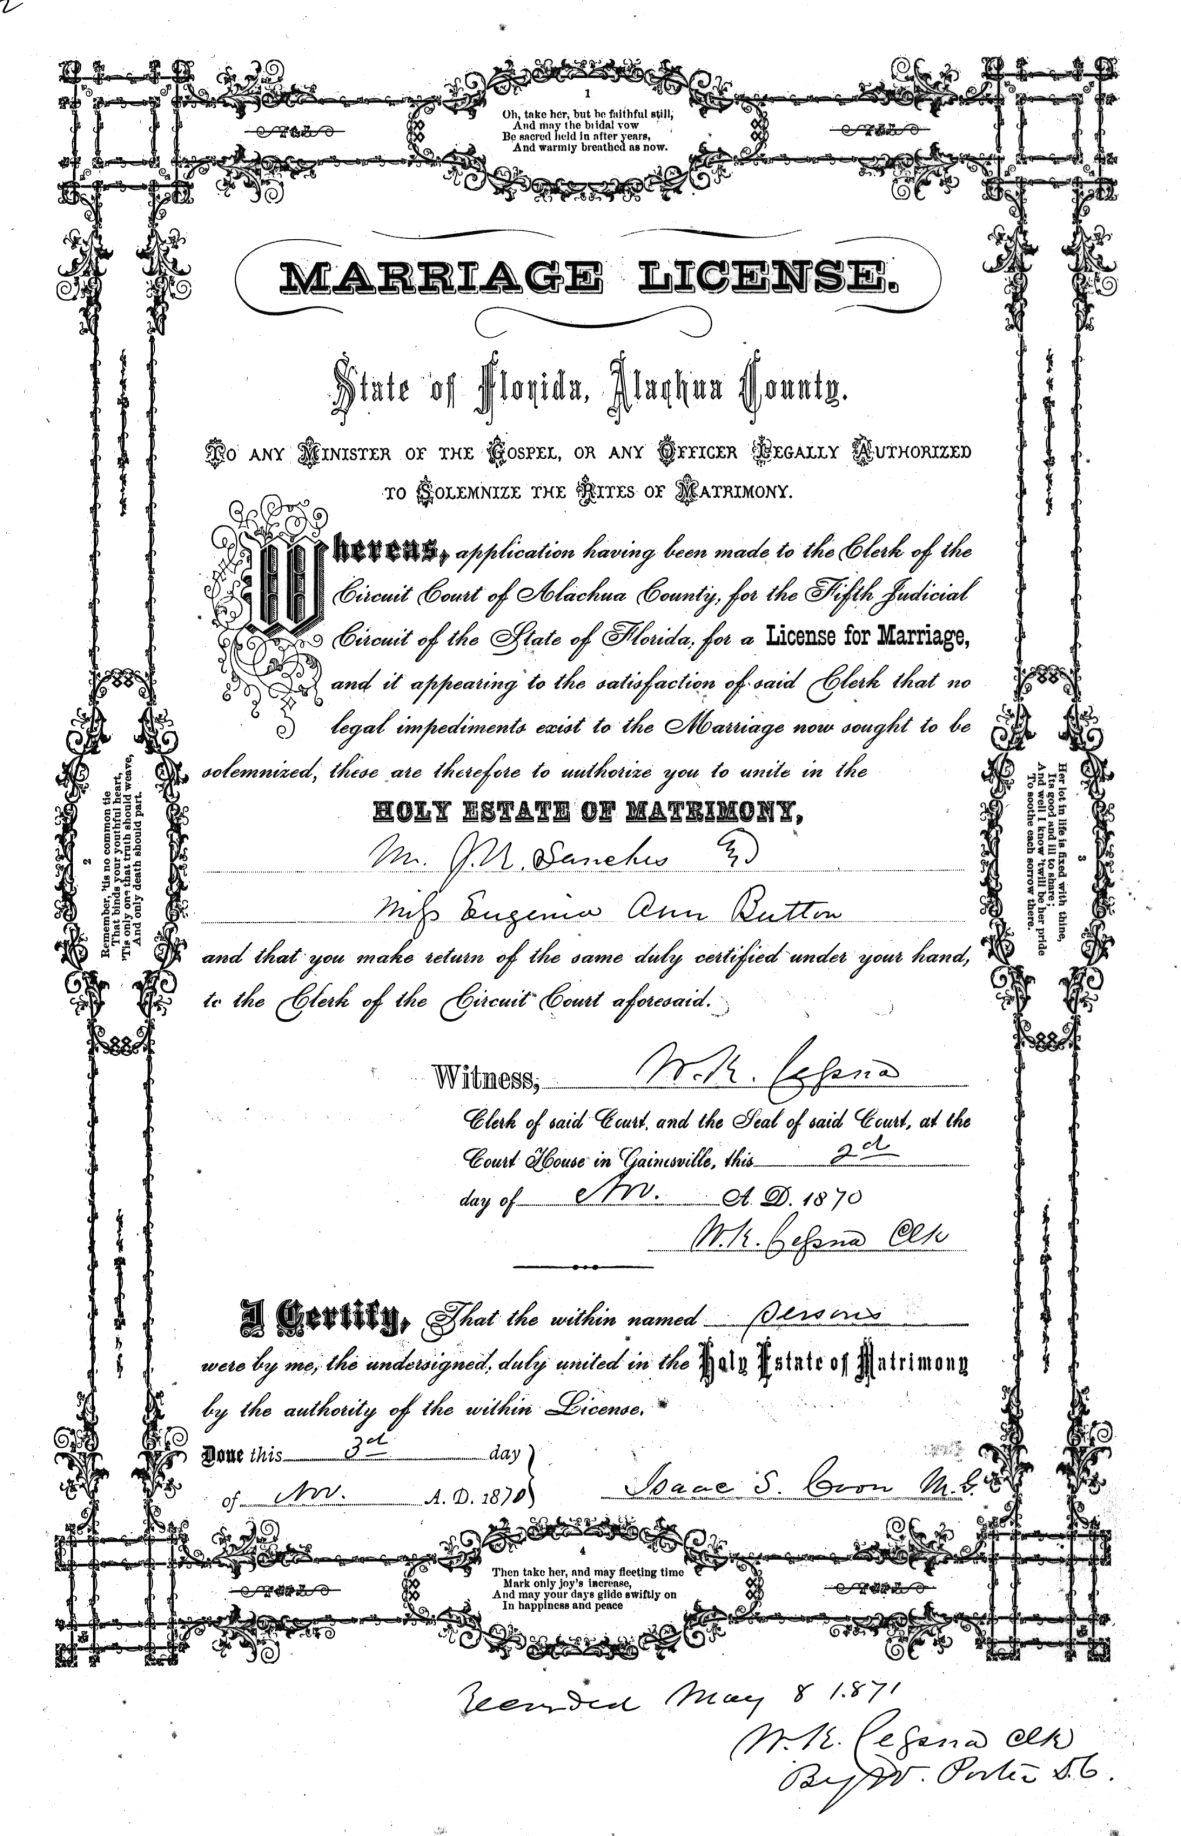 1
Oh, take her, but be faithful still,
And may the bridal vow
Be sacred held in after years,
And warmly breathed as now.
MARRIAGE LICENSE.
State of Florida, Alachua County.
TO ANY MINISTER OF THE GOSPEL, OR ANY OFFICER LEGALLY AUTHORIZED
TO SOLEMNIZE THE RITES OF MATRIMONY.
Whereas, application having been made to the Clerk of the
Circuit Court of Alachua County, for the Fifth Judicial
Circuit of the State of Florida, for a License for Marriage,
and it appearing to the satisfaction of said Clerk that no
legal impediments exist to the Marriage now sought to be
solemnized, these are therefore to authorize you to unite in the
HOLY ESTATE OF MATRIMONY,
Mr. J. N. Sanches
Miss Eugenia Ann Button
and that you make return of the same duly certified under your hand,
to the Clerk of the Circuit Court aforesaid.
2
Remember, 'tis no common tie
That binds your youthful heart,
'Tis only one that truth should weave,
And only death should part.
3
Her lot in life is fixed with thine,
Its good and ill to share;
And well I know 'twill be her pride
To soothe each sorrow there.
Witness, W. K. Cessna
Clerk of said Court, and the Seal of said Court, at the
Court House in Gainesville, this 2d
day of Nov. A. D. 1870
W. K. Cessna Clk
I Certify, That the within named persons
were by me, the undersigned, duly united in the Holy Estate of Matrimony
by the authority of the within License.
Done this 3d day
of Nov. A. D. 1870
Isaac S. Coon M. G.
4
Then take her, and may fleeting time
Mark only joy's increase,
And may your days glide swiftly on
In happiness and peace
Recorded May 8 1871
W. K. Cessna Clk
By W. Porter D. C.